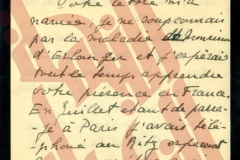 Votre lettre m'a
navrée. Je ne soupçonnais
pas la maladie
d'Erlanger et j'espérais
tout le temps apprendre
votre présence en France.
En Juillet étant de passa-
ge à Paris j'avais télé-
phoné au Ritz espérant